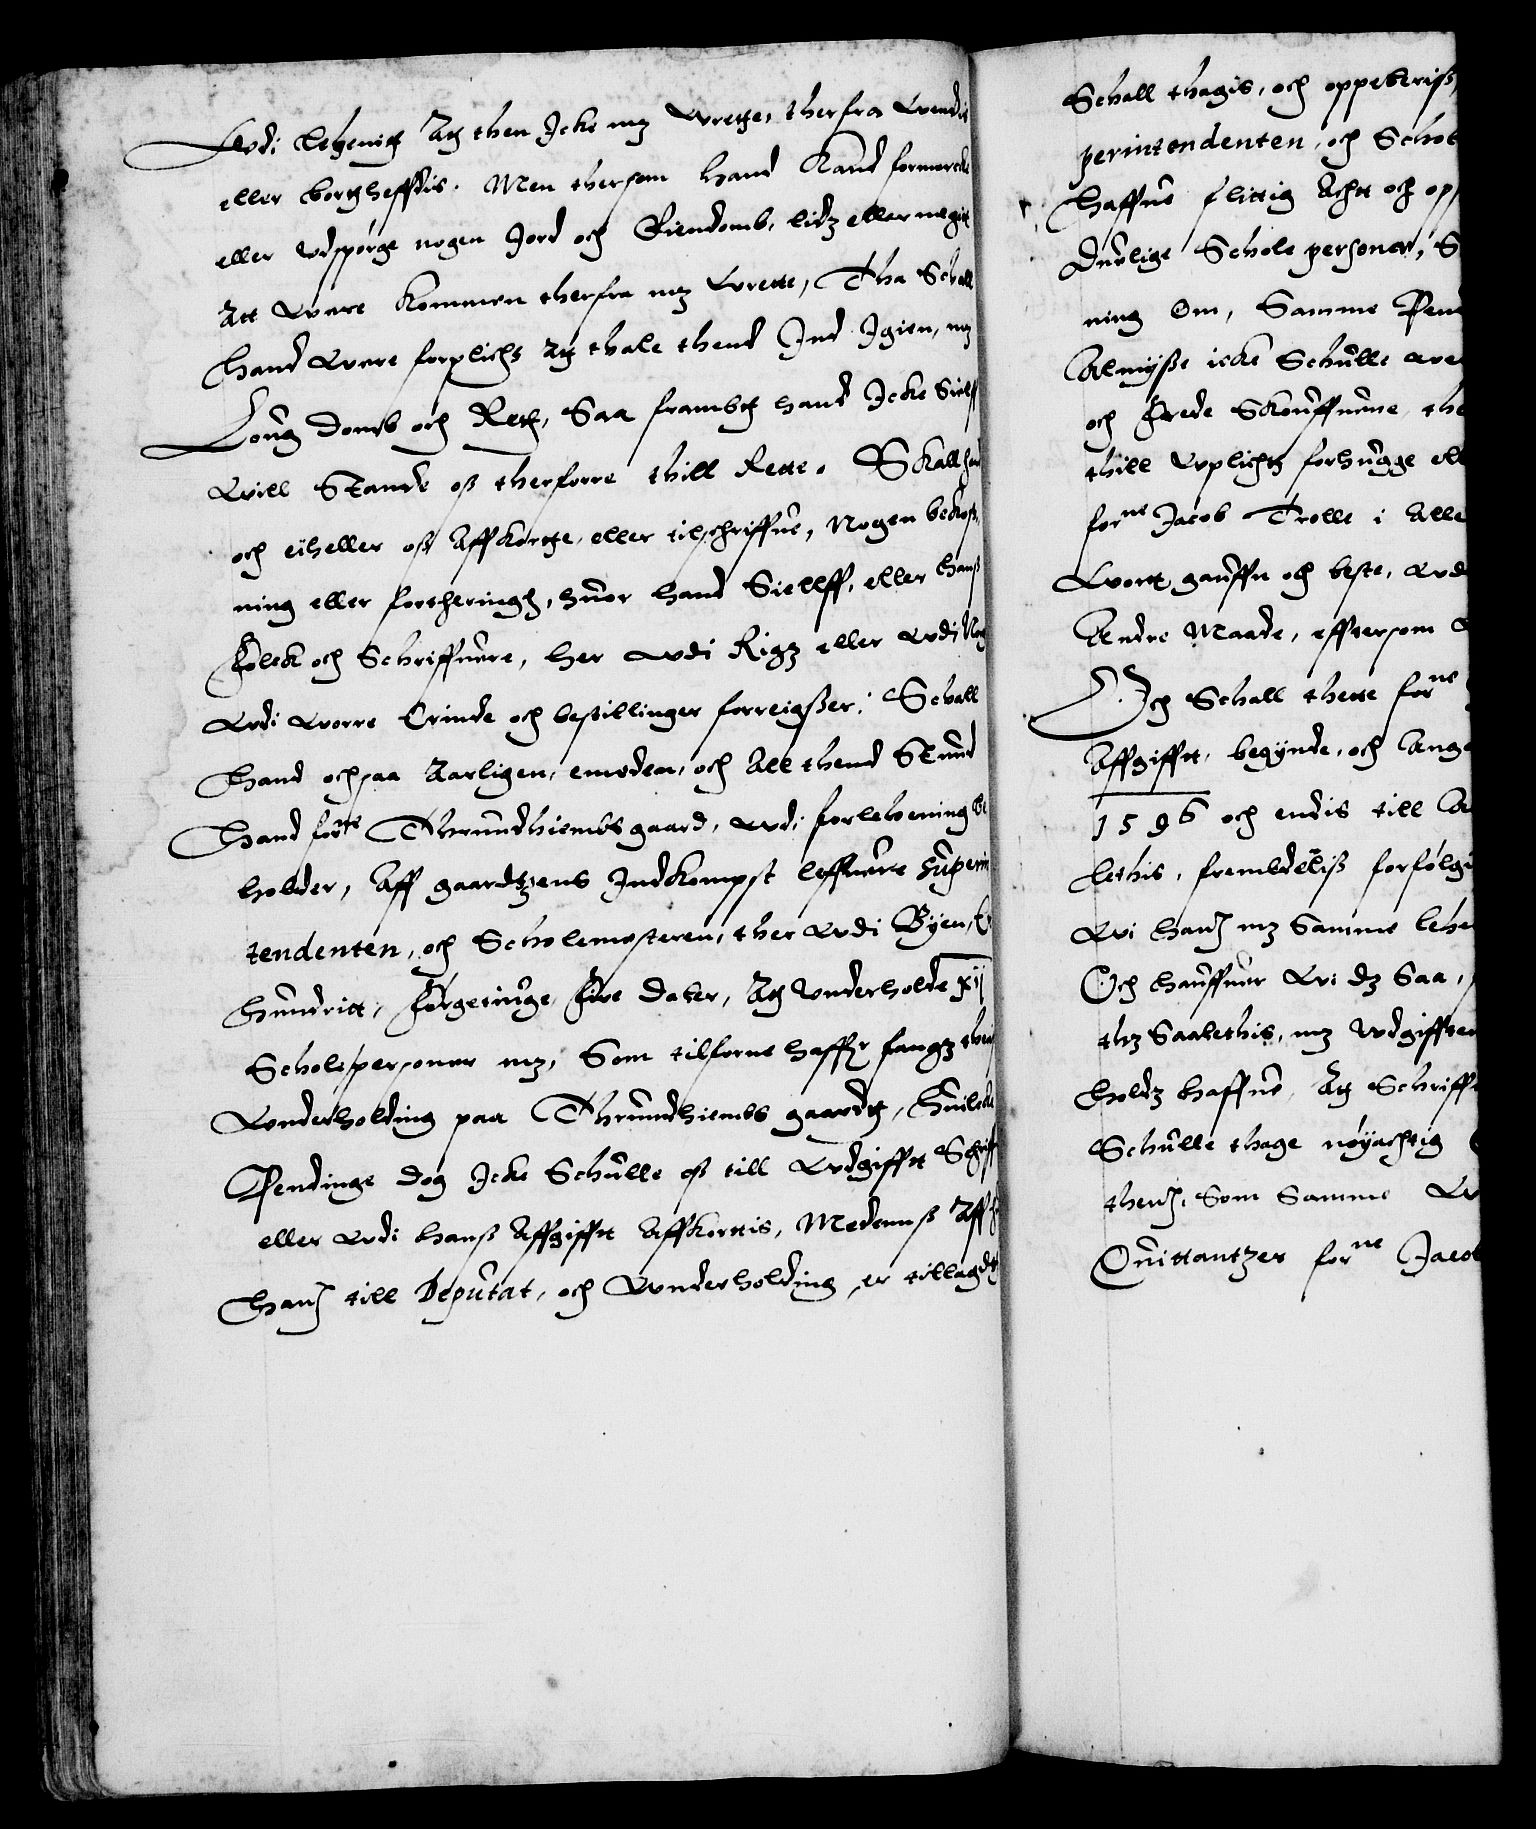 Udi lehenit At then Icke mz Urette, therfra Vendis
eller bortheffdis. Men thersom hand Kand formercke
eller Udspørge nogen Jord och Eiendomb, lidz eller megit
Att Vere Kommen therfra mz Urette, Tha Schall
hand Were forplicht At thale thend Ind Igien, mz
Loug Domb och Rett, Saa frambt hand Icke Sielff
Will Stande oß therforre thill Rette. Skall hand
och eiheller oß Affkorte, eller tilschriffue, Nogen bekost-
ning eller fortheringh, huor hand Siellff, eller hans
Folck och Schriffuere, her udi Rigz eller udi Norg
Udi Worre Erinde och bestillinger forreigßer. Schall
Hand ochsaa Aarligen, emeden, och All thend Stund
Hand forne Thrundhiembs gaard, udi forlehening be
holder, Aff gaardtzens Indkompst leffuere Superin
tendenten, och Scholemesteren, ther Udi Byen,
Hundritt, Førgetiuge Fire Daler, At Underholde xij
Scholepersoner mz, Som tilforne haffr fangz theris
Underholding paa Thrundhiembs gaardt, Huilcke
Pendinge dog Icke Schulle oß till Udgifft Schriff
eller Udi hanß Affgifft Affkortis, Medenß
Hanß till Deputat, och Underholding, er tillagdt
Schall thagis, och oppeberiß,
perintendenten, och Schol
Haffue flittig Acht och op
Duelige Schole personer, S
ning Om, Samme Pen
Almysse icke Schulle
och Frede Skouffuene, the
thill Uplicht forhugge ell
forne Jacob Trolle i Alle
Wort gauffn och beste, udi
Andre Maade, efftersom
Och Schall thette forne
Affgifft, begynde, och Ang
1596 och endis till
lethis, frembdeliß forfølg
Wi hanß mz Samme lehe
Och hauffuer Wi dz Saa,
thz Saalethis, mz Udgifften
holdz haffue, At Schriff
Schulle thage nøyachtig
thenß, Som Samme
Quittantzer forne Jacob